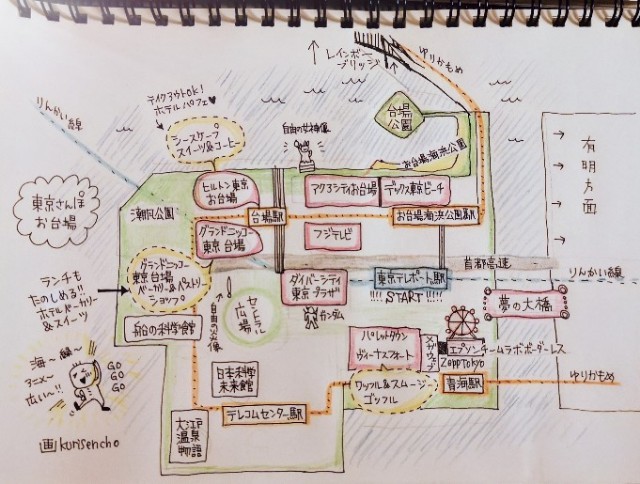 レインボー
ブリッジ
ゆりかもめ
テイクアウトOK!
ホテルパフェ♥
シースケープ
スイーツ&コーヒー
自由の女神像
台場
公園
お台場海浜公園
りんかい線
東京さんぽ
お台場
潮風公園
ヒルトン東京
お台場
アクアシティお台場
デックス東京ビーチ
台場駅
お台場海浜公園駅
グランドニッコー
東京 台場
フジテレビ
有明方面
首都高速
りんかい線
ランチも
たのしめる!!
ホテルベーカリー
&スイーツ
グランドニッコー
東京 台場
ベーカリー&ペストリー
ショップ
ダイバーシティ
東京 プラザ
東京テレポート駅
!!!! START !!!!
ガンダム
夢の大橋
自由の炎像
センタープロムナード
広場
船の科学館
パレットタウン
ヴィーナスフォート
メガウェブ
エプソンチームラボボーダーレス
ZeppTokyo
日本科学
未来館
ワッフル&スムージー
ゴッフル
青海駅
ゆりかもめ
テレコムセンター駅
大江戸
温泉
物語
海〜
広い〜!!
GO
GO
GO
画kurisencho